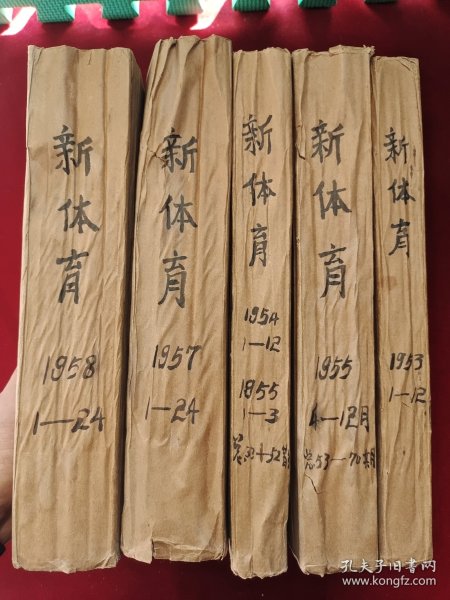 新体育
1958
1—24
新体育
1957
1—24
新体育
1954
1—12
1955
1—3
新体育
1955
4—12月
总53—70期
新体育
1953
1—12
孔夫子旧书网
www.kongfz.com